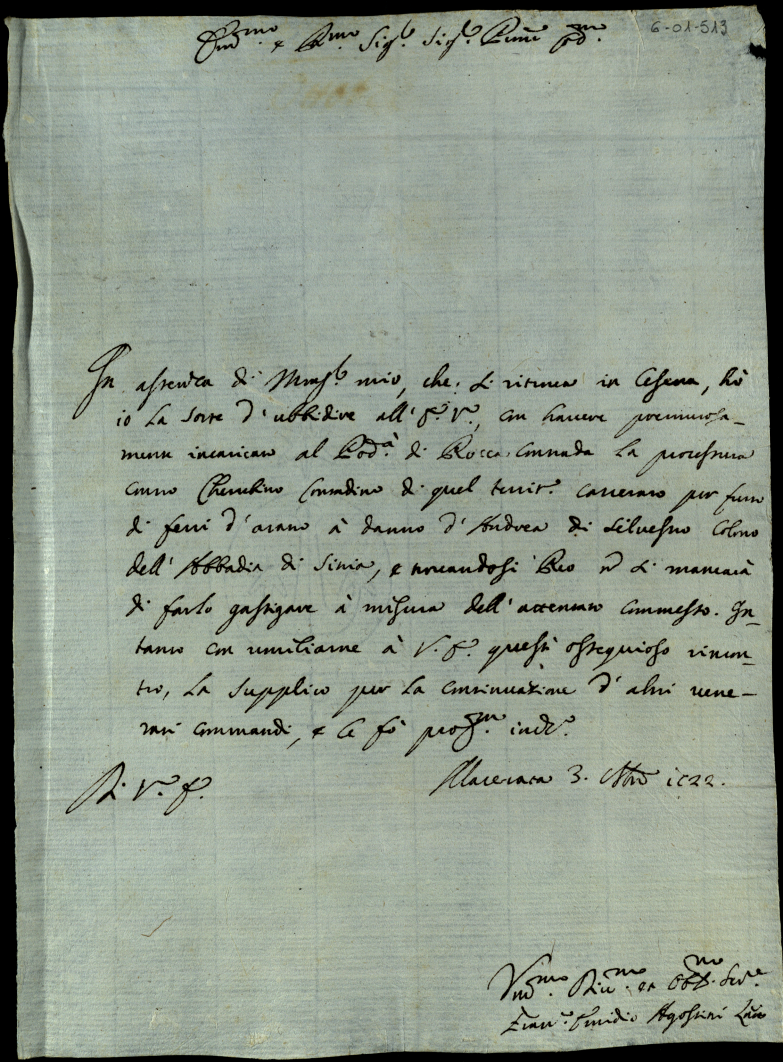 6-01-513
Em.mo e R.mo Sig.r Sig.r Pnne
In assenza di Mons.r mio, che si ritrova in Cesena, hò
io la sorte d'ubbidire all'E. V., con havere premurosa-
mente incaricato al Pod.à di Rocca Contrada la processura
contro Cherubino Contadino di quel territ.o carcerato per furto
di ferri d'arano à danno d'Andrea di Silvestro Colono
dell'Abbadia di Sitria, e trovandosi Reo nō si mancarà
di farlo gastigare à misura dell'attentato commesso. In-
tanto con umiliarne à V. E. questo ossequioso riscon-
tro, la supplico per la continuazione d'altri vene-
rati commandi, e le fò prof.ma
Di V. E.
Macerata 3.
Um.mo Div.mo et Obb.mo Ser.e
Fran.o Emidio Agostini